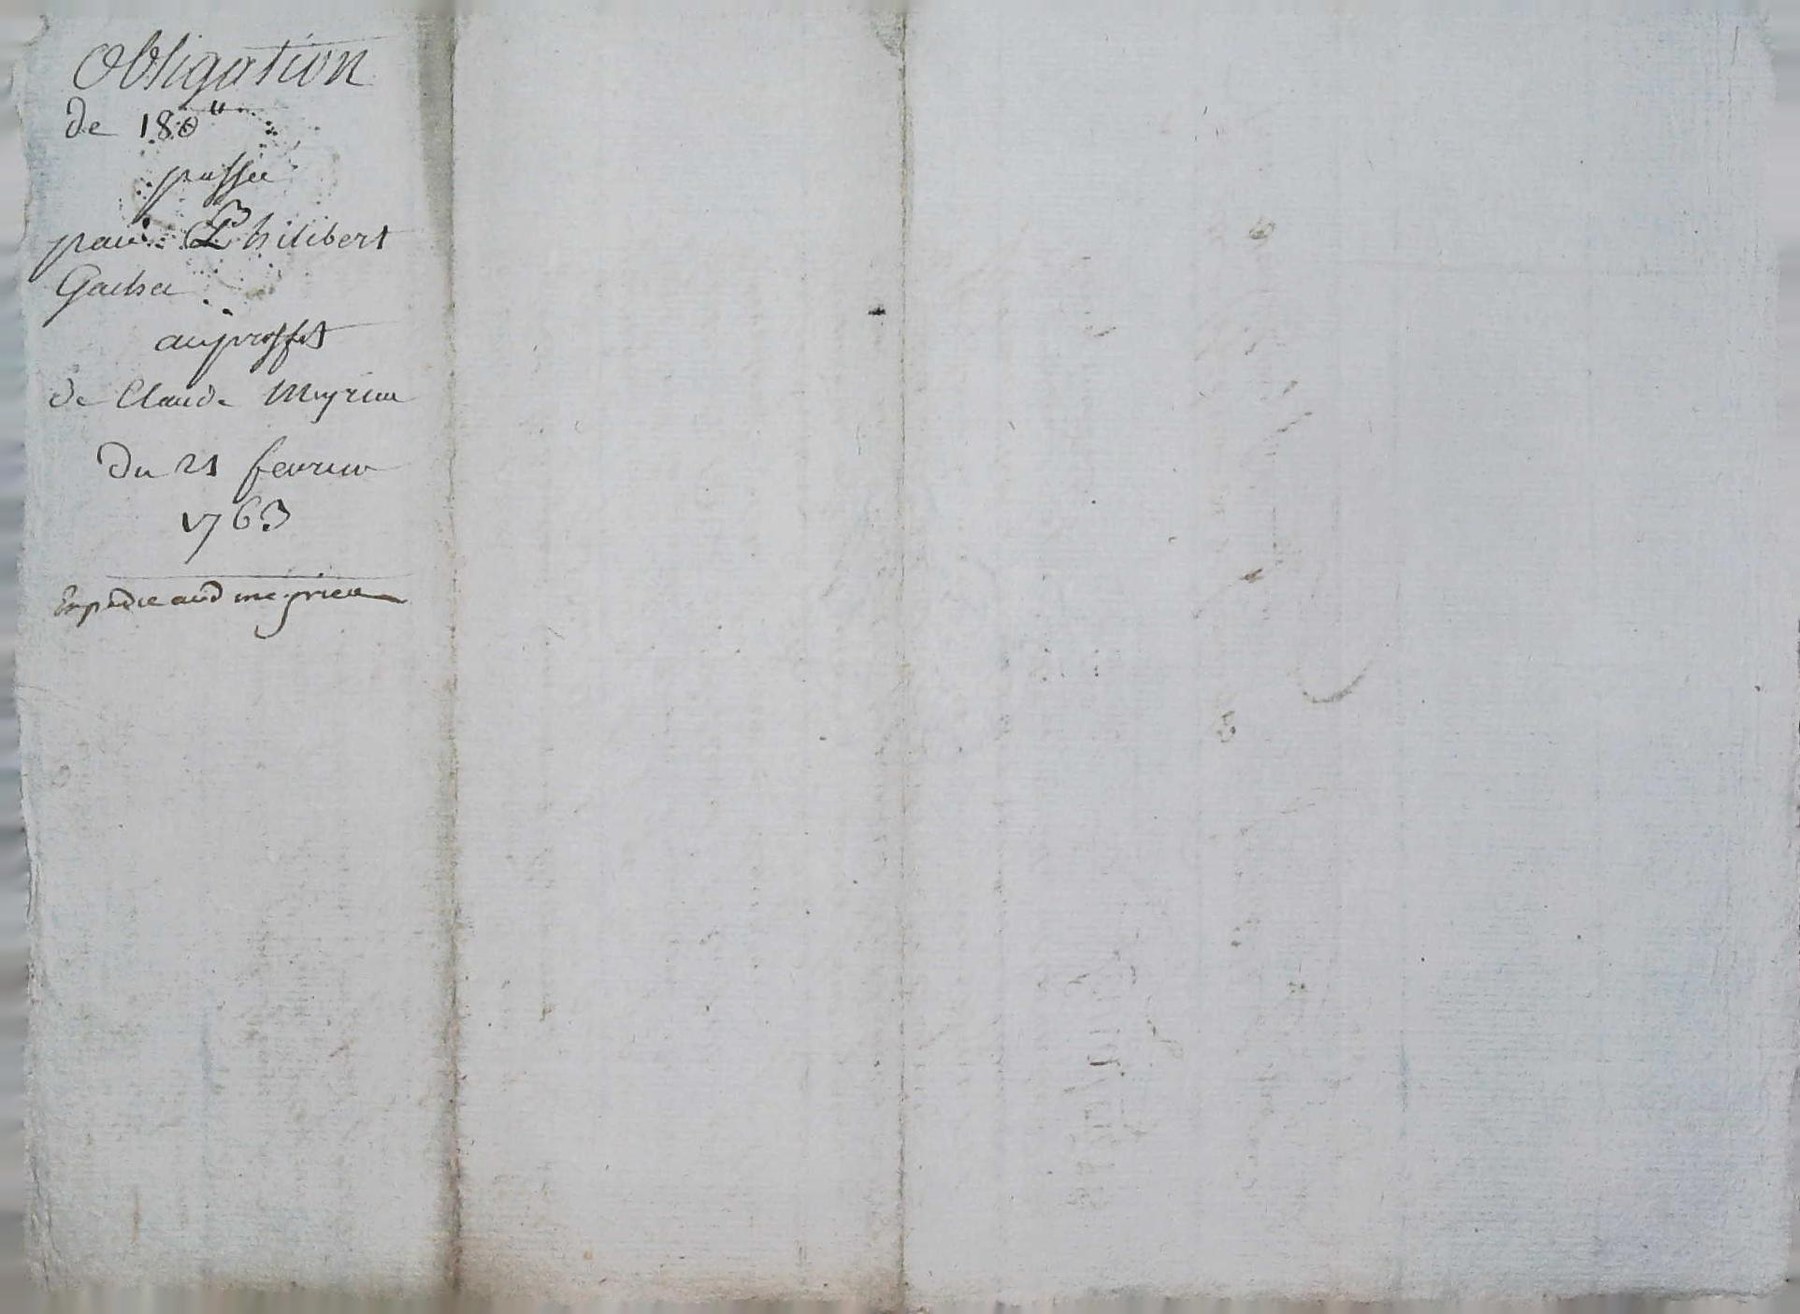 Obligation
de 180ᴴ
passée
par Philibert
Gacher
au proffit
de Claude Meyrieu
du 21 fevrier
1763
Expédié aud meyrieu